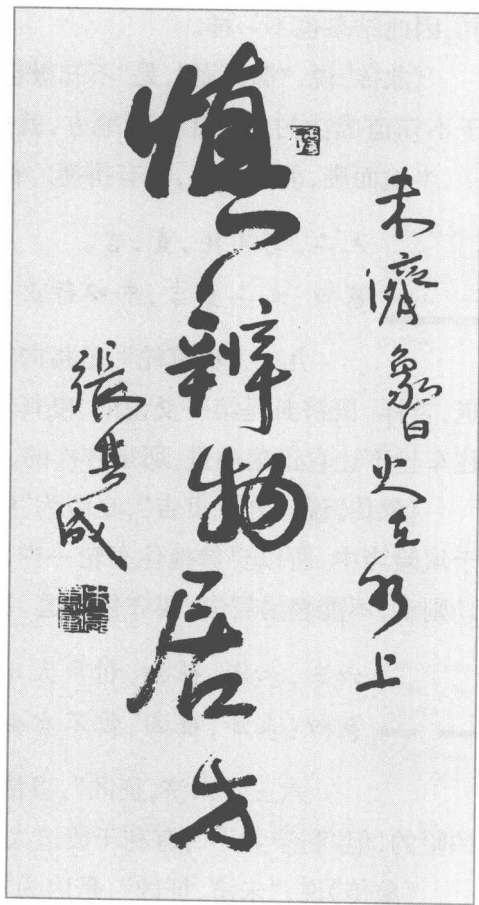 未濟象曰火在水上
慎辨物居方
張其成